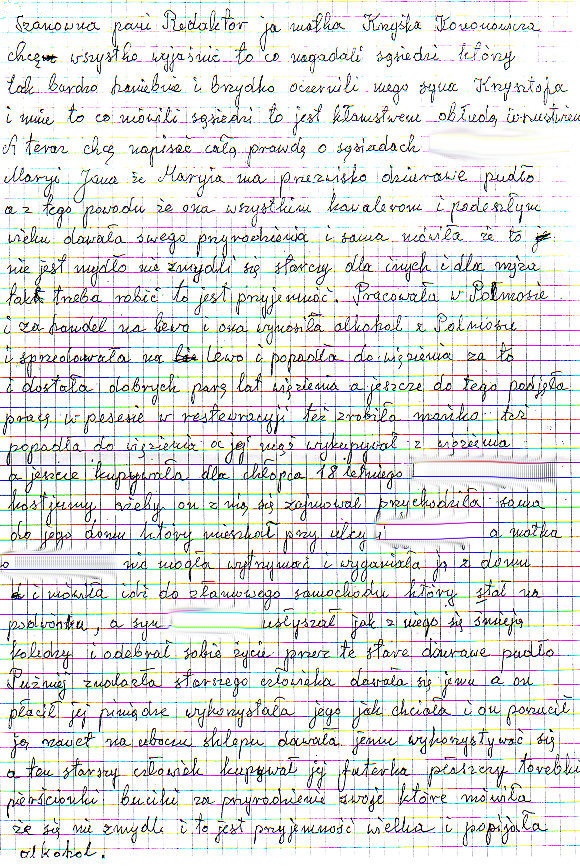 Szanowna pani Redaktor ja matka Kryśka Kononowicza
chcę wszystko wyjaśnić to co nagadali sąsiedzi który
tak bardzo haniebnie i brzydko oczernili mego syna Krzysztofa
i mnie to co mówili sąsiedzi to jest kłamstwem obłudą
A teraz chcę napisać całą prawdę o sąsiadach
Maryi Jana że Maryja ma przezwisko dziurawe pudło
a z tego powodu że ona wszystkim kavalerom i podeszłym
wieku dawała swego przyrodzenia i sama mówiła że to
nie jest mydło nie zmydli się starczy dla inych i dla męża
tak treba robić to jest przyjemność. Pracowała w Polmosie
i za handel na lewo i ona wynosiła alkohol z Polmosu
i sprzedowała na lewo i popadła do więzienia za to
i dostała dobrych parę lat więzienia a jeszcze do tego podjęła
pracę w pesesie w restewracyji też zrobiła mańko też
popadła do więzienia a jej mąż wykupywał z więzienia
a jeszcie kupywała dla chłopca 18 letniego
kostjumy rzeby on z nią się zajmował przychodziła sama
do jego domu który mieszkał przy ulicy i a matka
nie mogła wytrzymać i wyganiała ją z domu
i mówiła idzi do złamowego samochodu który stał na
podwórku, a syn usłyszał jak z niego się śmieją
koledzy i odebrał sobie życie przez te stare dziurawe pudło
Puźniej znalazła starszego człowieka dawała się jemu a on
płacił jej piniądze wykorzystała jego jak chciała i on porucił
ją nawet na uboczu sklepu dawała jemu wykorzystywać się
a ten starszy człowiek kupywał jej futerka płaszczy torebki
pierścionki buciki za przyrodzenie swoje które mówiła
że się nie zmydli i to jest przyjemność wielka i popijała
alkohol.